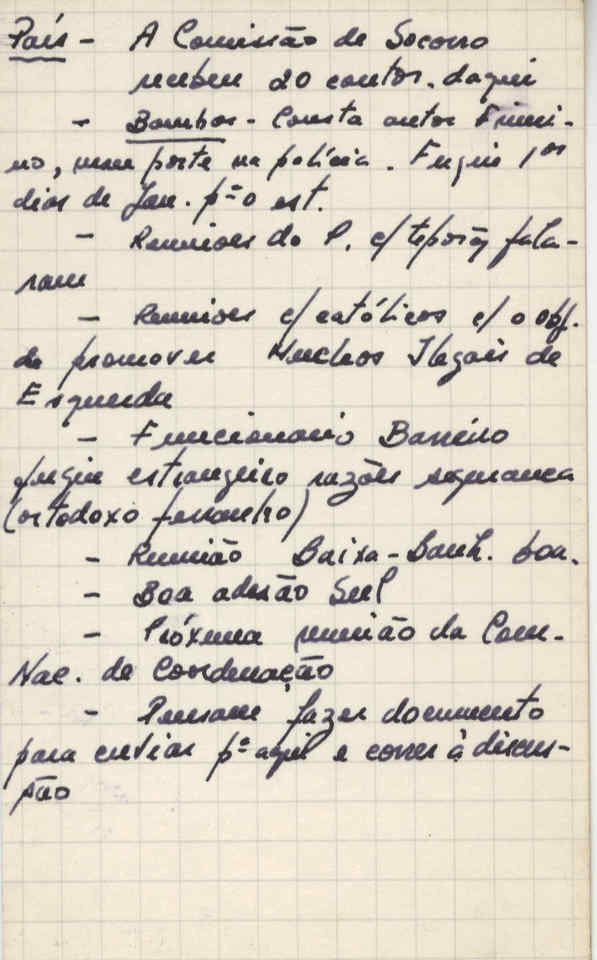 País - A Comissão de Socorro
recebeu 20 contos. daqui
- Bombas - Consta autor Firmi-
no, porte na polícia. Fugiu 1os
dias de Jan. pª o est.
- Reuniões do P. c/ fala-
ram
- Reuniões c/ católicos c/ o obj.
de promover Nucleos Ilegais de
Esquerda
- Funcionario Barreiro
fugiu estrangeiro razões segurança
(ortodoxo ferrenho)
- Reunião Baixa-Banh. boa.
- Boa adesão Sul
- Próxima reunião da Com.
Nac. de Coordenação
- Pensam fazer documento
para enviar pª aqui e correr à discus-
são